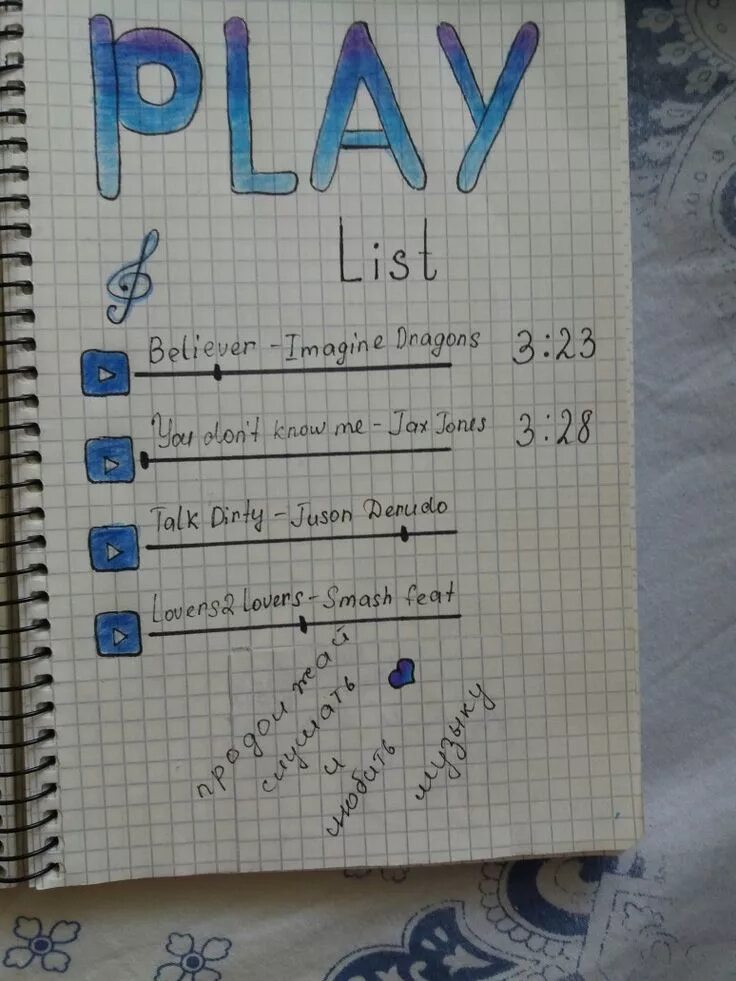 PLAY
List
Believer - Imagine Dragons 3:23
You don't know me - Jax Jones 3:28
Talk Dirty - Juson Derudo
Lovers2 lovers - Smash feat
продолжай
слушать
и
любить
музыку